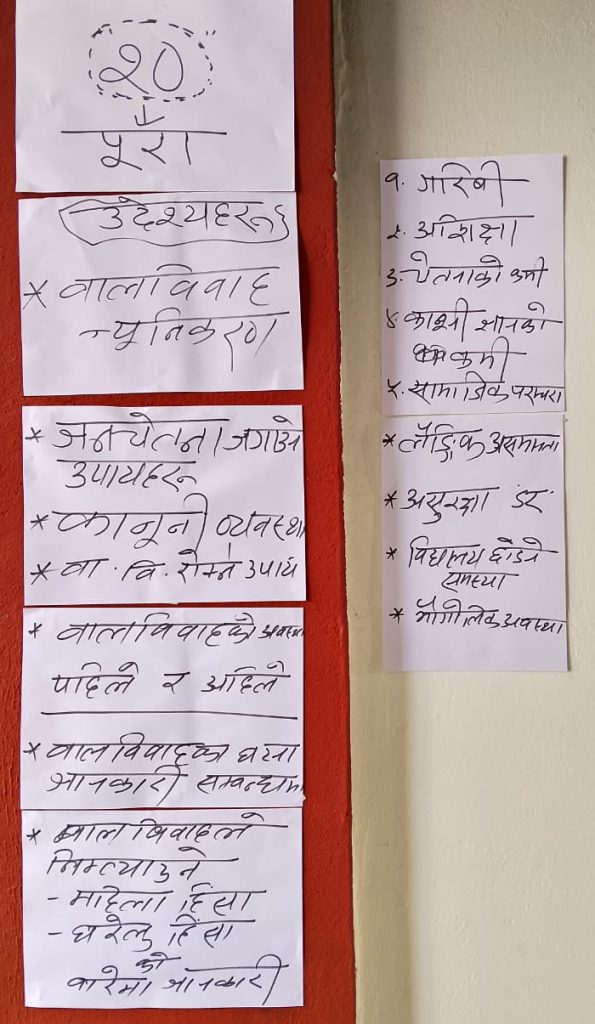 २०
पूरा
उदेश्यहरू
* वालविवाह
न्यूनिकरण
* जनचेतना जगाउने
उपायहरू
* कानूनी व्यवस्था
* वा. वि. रोक्ने उपाय
* वालविवाहको अवस्था
पहिले र अहिले
* वालविवाहका घटना
जानकारी सम्वन्धमा
* बाल विवाहले
निम्त्याउने
- महिला हिंसा
- घरेलु हिंसा
को
वारेमा जानकारी
१. गरिबी
२. अशिक्षा
३. चेतनाको कमी
४. कानूनी ज्ञानको
कमी
५. सामाजिक परम्परा
* लैङ्गिक असमानता
* असुरक्षा डर
* विद्यालय छोड्ने
समस्या
* भौगोलिक अवस्था